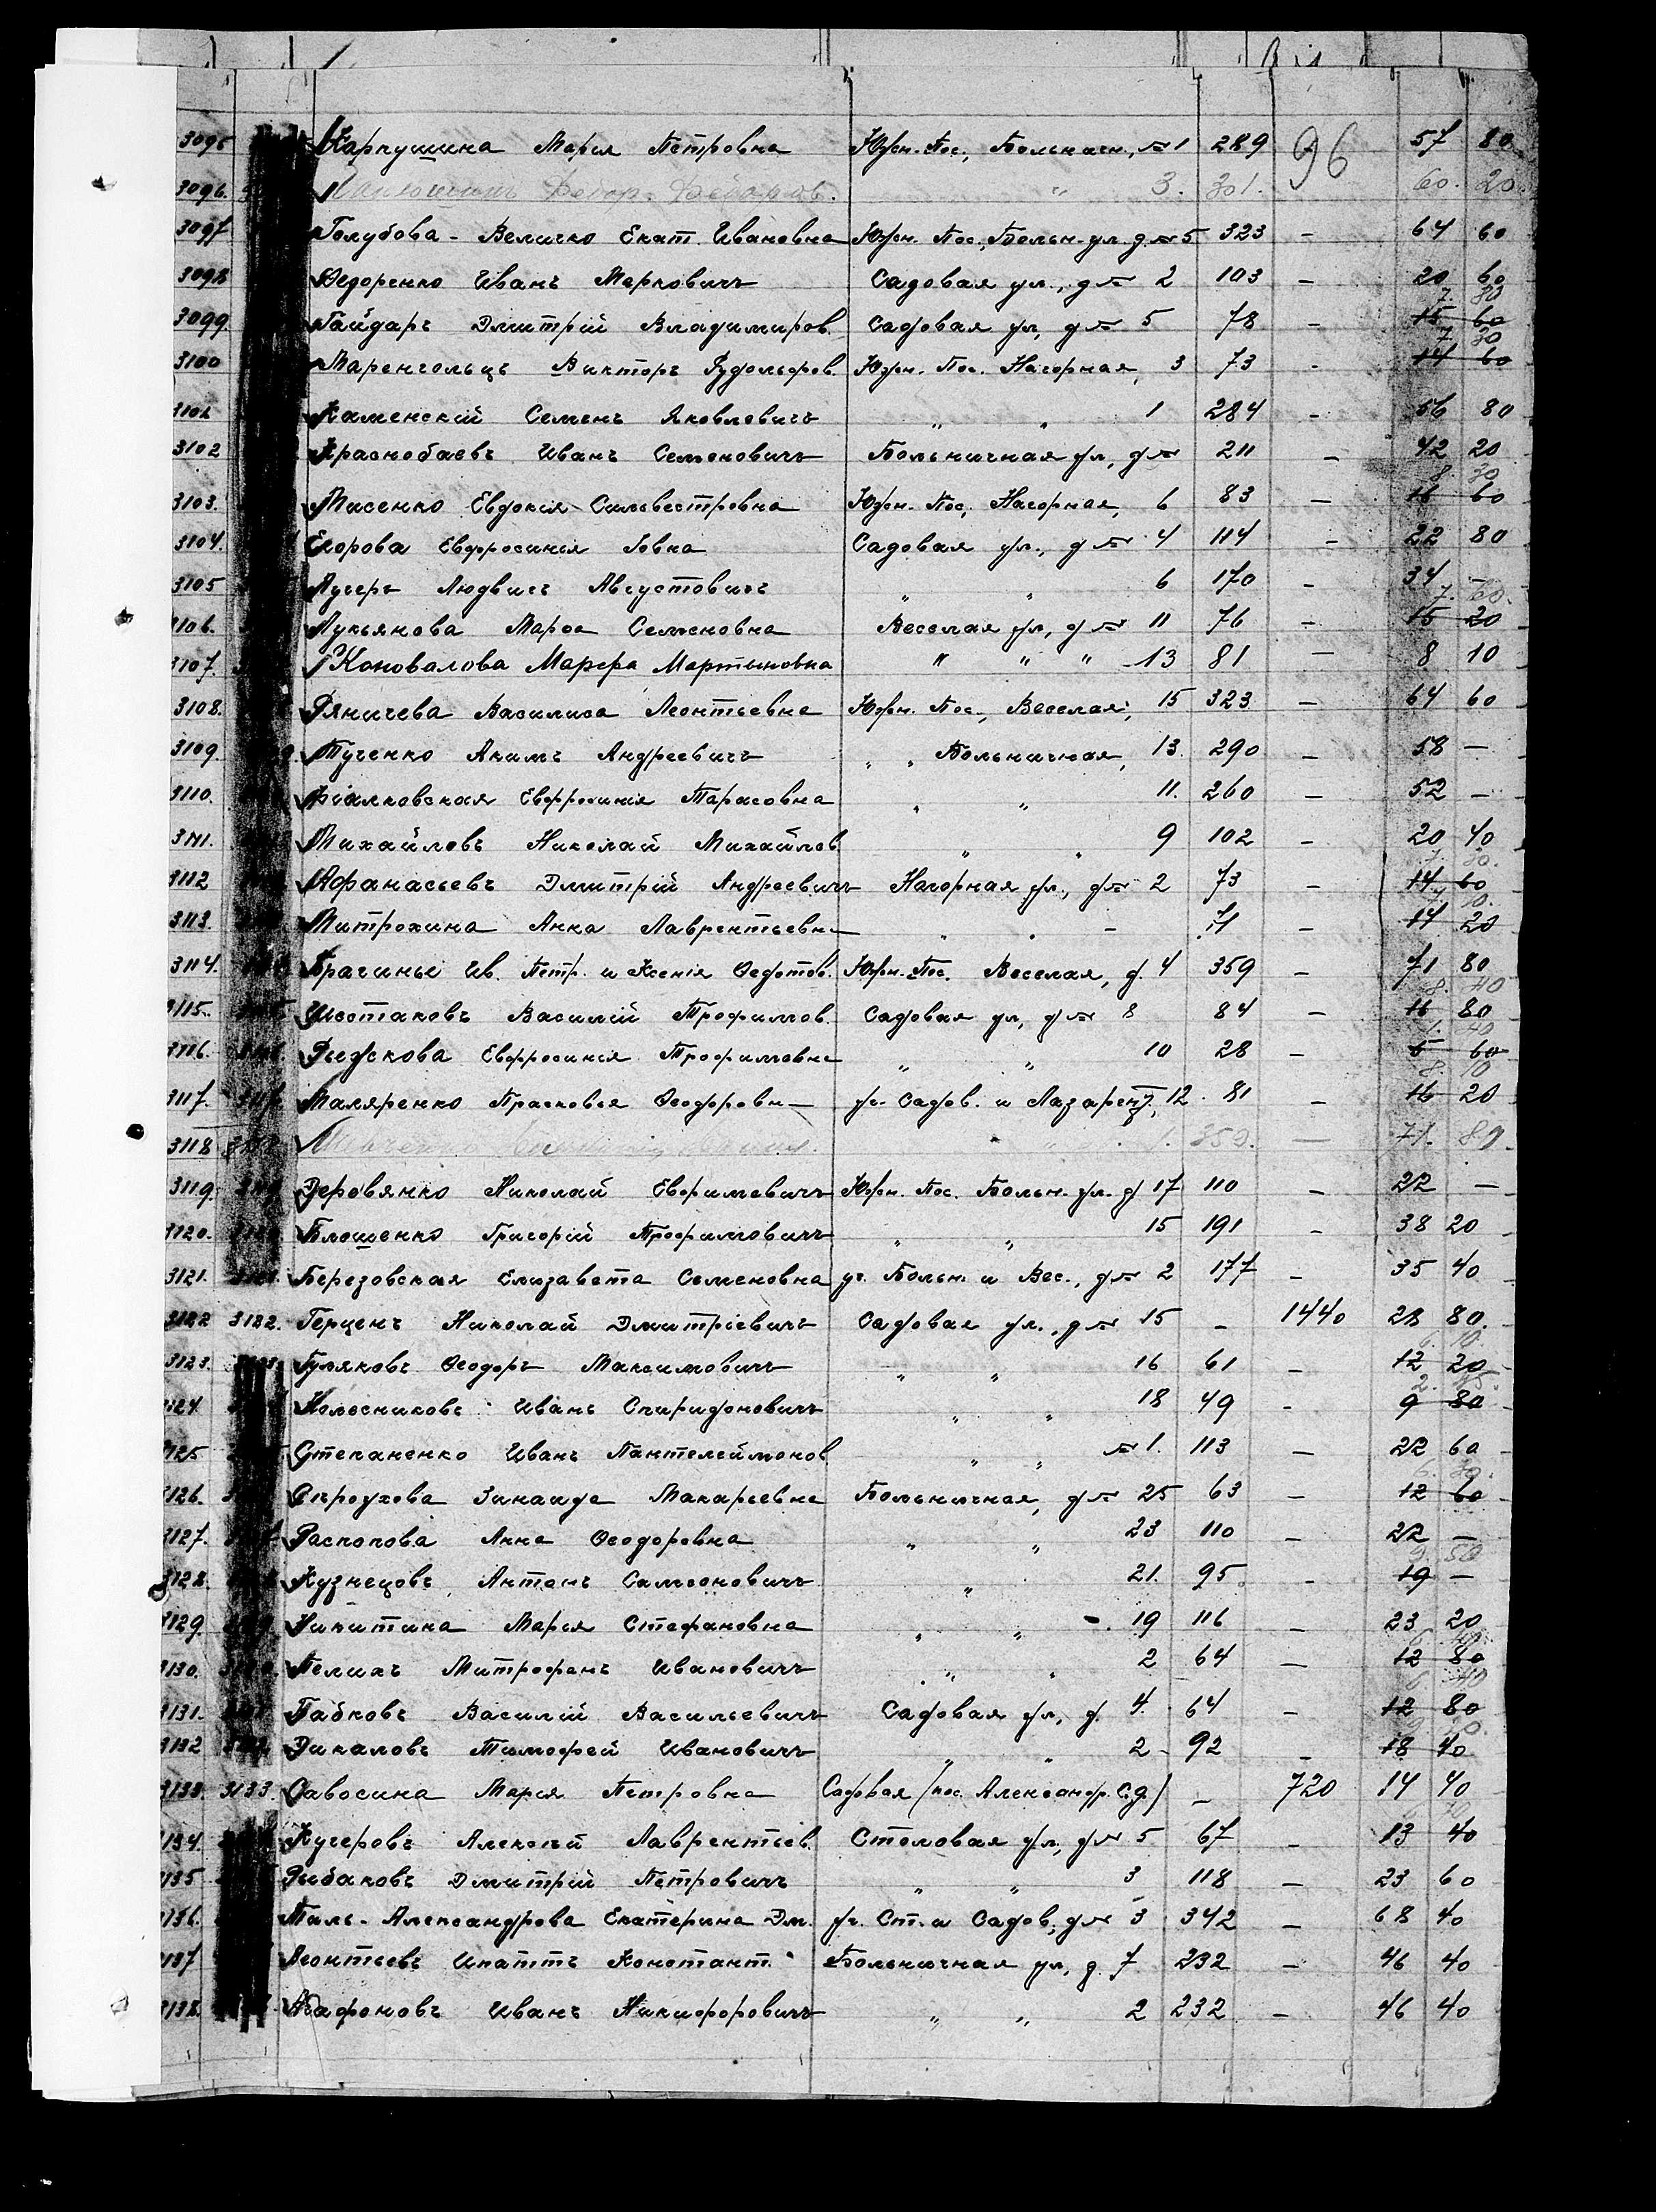 96
3095 Карпушина Марья Петровна Южн. Пос., Больничн., № 1 289 57 80
3096. 3. 301. 60. 20
3097 Голубова-Величко Екат. Ивановна Южн. Пос., Больн. ул. д № 5 323 — 64 60
3098 Федоренко Иванъ Марковичъ Садовая ул., д № 2 103 — 20 60
3099. Гайдаръ Дмитрій Владиміров. Садовая ул, д № 5 78 — 15 60 7. 80
3100 Маренгольцъ Викторъ Рудольфов. Южн. Пос. Нагорная, 3 73 - 14 60 7 30
3101 Каменскій Семенъ Яковлевичъ „ „ 1 284 - 56 80
3102 Краснобаевъ Иванъ Семеновичъ Больничная ул, д № 211 — 42 20
3103. Мисенко Евдокія Сильвестровна Южн. Пос, Нагорная, 6 83 — 16 60 8. 30
3104. Егорова Евфросинія Іовна Садовая ул., д № 4 114 — 22 80
3105 Лугеръ Людвигъ Августовичъ „ „ 6 170 - 34 —
3106. Лукьянова Марѳа Семеновна Веселая ул, д № 11 76 — 15 20 7. 60.
3107. Коновалова Марѳа Мартыновна „ „ „ 13 81 — 8 10
3108. Ряничева Василиса Леонтьевна Южн. Пос., Веселая, 15 323 — 64 60
3109. Тученко Акимъ Андреевичъ „ „ Больничная, 13. 290 — 58 —
3110. Фіалковская Евфросинія Тарасовна „ „ 11. 260 — 52 —
3111. Михайловъ Николай Михайлов „ „ 9 102 — 20 40
3112 Афанасьевъ Дмитрій Андреевичъ Нагорная ул., д № 2 73 — 14 60 7. 30.
3113. Митрохина Анна Лаврентьевна „ „ - 71 — 14 20
3114. Брагины Ив. Петр. и Ксенія Ѳедотов. Южн. Пос. Веселая, д. 4 359 — 71 80
3115. Шестаковъ Василій Трофимов. Садовая ул, д № 8 84 — 16 80 8. 40
3116. Рыжкова Евфросинія Трофимовна „ „ 10 28 — 5 60
3117. Маляренко Прасковья Ѳеодоровн уг. Садов. и Лазарету, 12. 81 — 16 20 8. 10
3118 „ 1. 359. — 71. 80
3119. Деревянко Николай Евфимовичъ Южн. Пос. Больн. ул. д 17 110 — 22 —
3120. Блошенко Григорій Трофимовичъ „ „ 15 191 - 38 20
3121. Березовская Елизавета Семеновна уг. Больн. и Вес., д № 2 177 — 35 40
3122 3122. Герценъ Николай Дмитріевичъ Садовая ул., д № 15 — 1440 28 80.
3123. Гуляковъ Ѳеодоръ Максимовичъ „ „ 16 61 — 12 20 6. 10.
3124 Колесниковъ Иванъ Спиридоновичъ „ „ 18 49 - 9 80
3125 Степаненко Иванъ Пантелеймонов „ „ № 1. 113 — 22 60
3126. Зинаида Макарьевна Больничная, д № 25 63 — 12 60 6. 30.
3127. Распопова Анна Ѳеодоровна „ „ 23 110 — 22 —
3128. Кузнецовъ Антонъ Самсоновичъ „ 21. 95 - 19 — 9. 50
3129. Никитина Марія Стефановна „ „ 19 116 — 23 20
3130. Пелихъ Митрофанъ Ивановичъ „ „ 2 64 — 12 80 6 40
3131. Бабковъ Василій Васильевичъ Садовая ул, д. 4. 64 — 12 80 6 40
3132 Дикаловъ Тимофей Ивановичъ „ „ 2 - 92 — 18 40
3133. 3133. Савосина Марія Петровна Садовая (пос. Александр. С.д.) — 720 14 40
3134. Кучеровъ Алексѣй Лаврентьев. Столовая ул, д № 5 67 — 13 40
3135 Рыбаковъ Дмитрій Петровичъ „ „ 3 118 — 23 60
3136. Тиль-Александрова Екатерина Дм. уг. Ст. и Садов, д № 3 342 — 68 40
3137 Леонтьевъ Ипатъ Констант. Больничная ул, д. 7 232 — 46 40
3138. Агафоновъ Иванъ Никифоровичъ „ „ 2 232 — 46 40